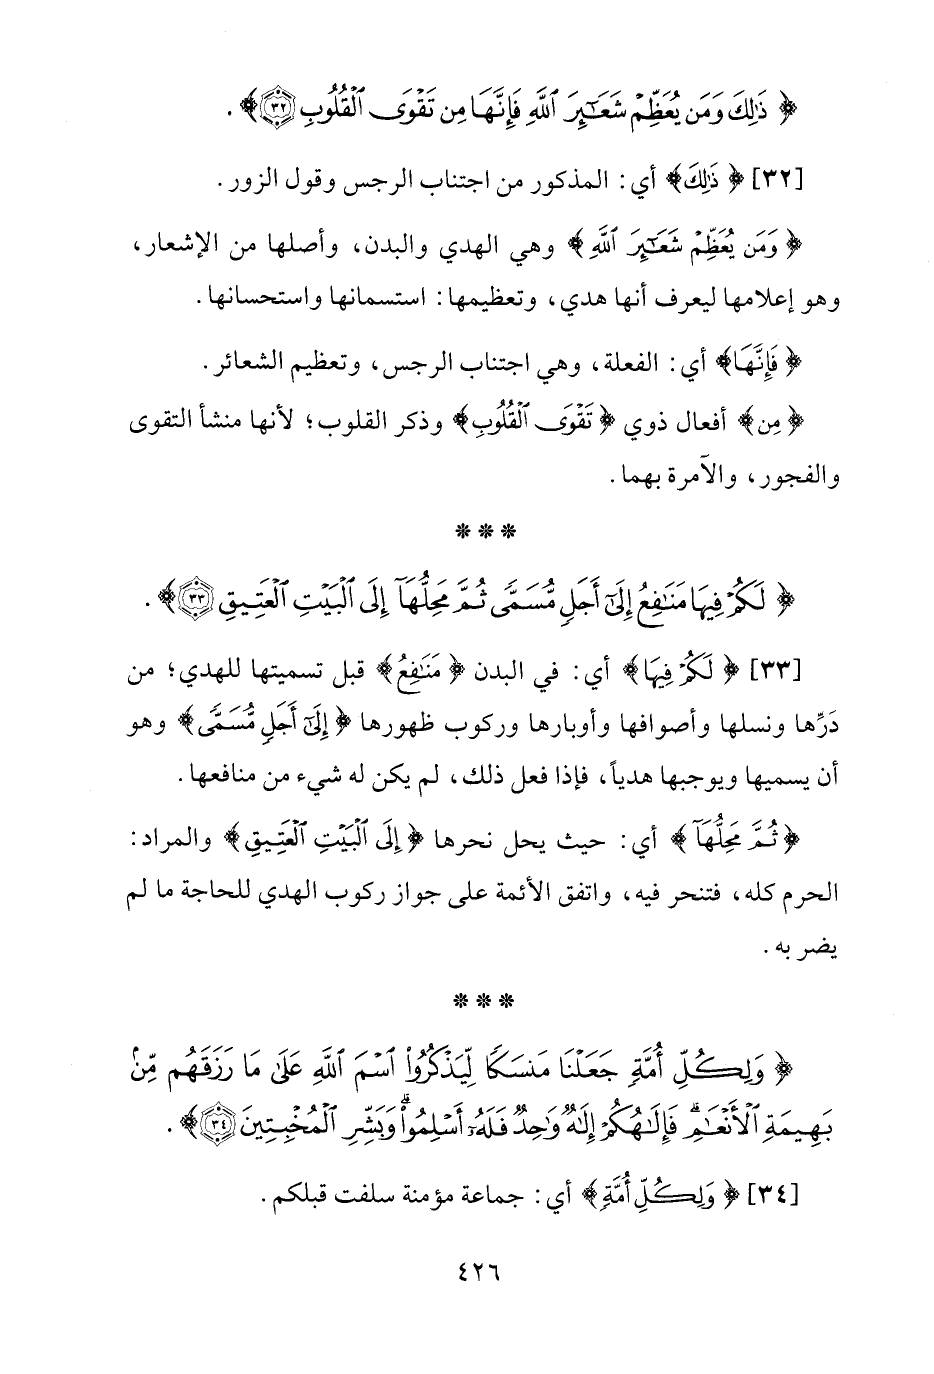 ﴿ ذَٰلِكَ وَمَن يُعَظِّمْ شَعَٰٓئِرَ ٱللَّهِ فَإِنَّهَا مِن تَقْوَى ٱلْقُلُوبِ ٣٢﴾ .
[٣٢] ﴿ ذَٰلِكَ﴾ أي: المذكور من اجتناب الرجس وقول الزور .
﴿ وَمَن يُعَظِّمْ شَعَٰٓئِرَ ٱللَّهِ ﴾ وهي الهدي والبدن، وأصلها من الإشعار،
وهو إعلامها ليعرف أنها هدي، وتعظيمها: استسمانها واستحسانها.
﴿ فَإِنَّهَا﴾ أي: الفعلة، وهي اجتناب الرجس، وتعظيم الشعائر .
﴿ مِن﴾ أفعال ذوي ﴿ تَقْوَى ٱلْقُلُوبِ﴾ وذكر القلوب؛ لأنها منشأ التقوى
والفجور، والآمرة بهما.
* * *
﴿ لَكُمْ فِيهَا مَنَٰفِعُ إِلَىٰٓ أَجَلٍ مُّسَمًّى ثُمَّ مَحِلُّهَآ إِلَى ٱلْبَيْتِ ٱلْعَتِيقِ ٣٣﴾ .
[٣٣] ﴿ لَكُمْ فِيهَا﴾ أي: في البدن ﴿ مَنَٰفِعُ﴾ قبل تسميتها للهدي؛ من
دَرِّها ونسلها وأصوافها وأوبارها وركوب ظهورها ﴿ إِلَىٰٓ أَجَلٍ مُّسَمًّى﴾ وهو
أن يسميها ويوجبها هدياً، فإذا فعل ذلك، لم يكن له شيء من منافعها.
﴿ ثُمَّ مَحِلُّهَآ ﴾ أي: حيث يحل نحرها ﴿ إِلَى ٱلْبَيْتِ ٱلْعَتِيقِ﴾ والمراد:
الحرم كله، فتنحر فيه، واتفق الأئمة على جواز ركوب الهدي للحاجة ما لم
يضر به .
* * *
﴿ وَلِكُلِّ أُمَّةٍ جَعَلْنَا مَنسَكًا لِّيَذْكُرُوا۟ ٱسْمَ ٱللَّهِ عَلَىٰ مَا رَزَقَهُم مِّنۢ
بَهِيمَةِ ٱلْأَنْعَٰمِ ۗ فَإِلَٰهُكُمْ إِلَٰهٌ وَٰحِدٌ فَلَهُۥٓ أَسْلِمُوا۟ ۗ وَبَشِّرِ ٱلْمُخْبِتِينَ ٣٤﴾ .
[٣٤] ﴿ وَلِكُلِّ أُمَّةٍ﴾ أي: جماعة مؤمنة سلفت قبلكم .
٤٢٦